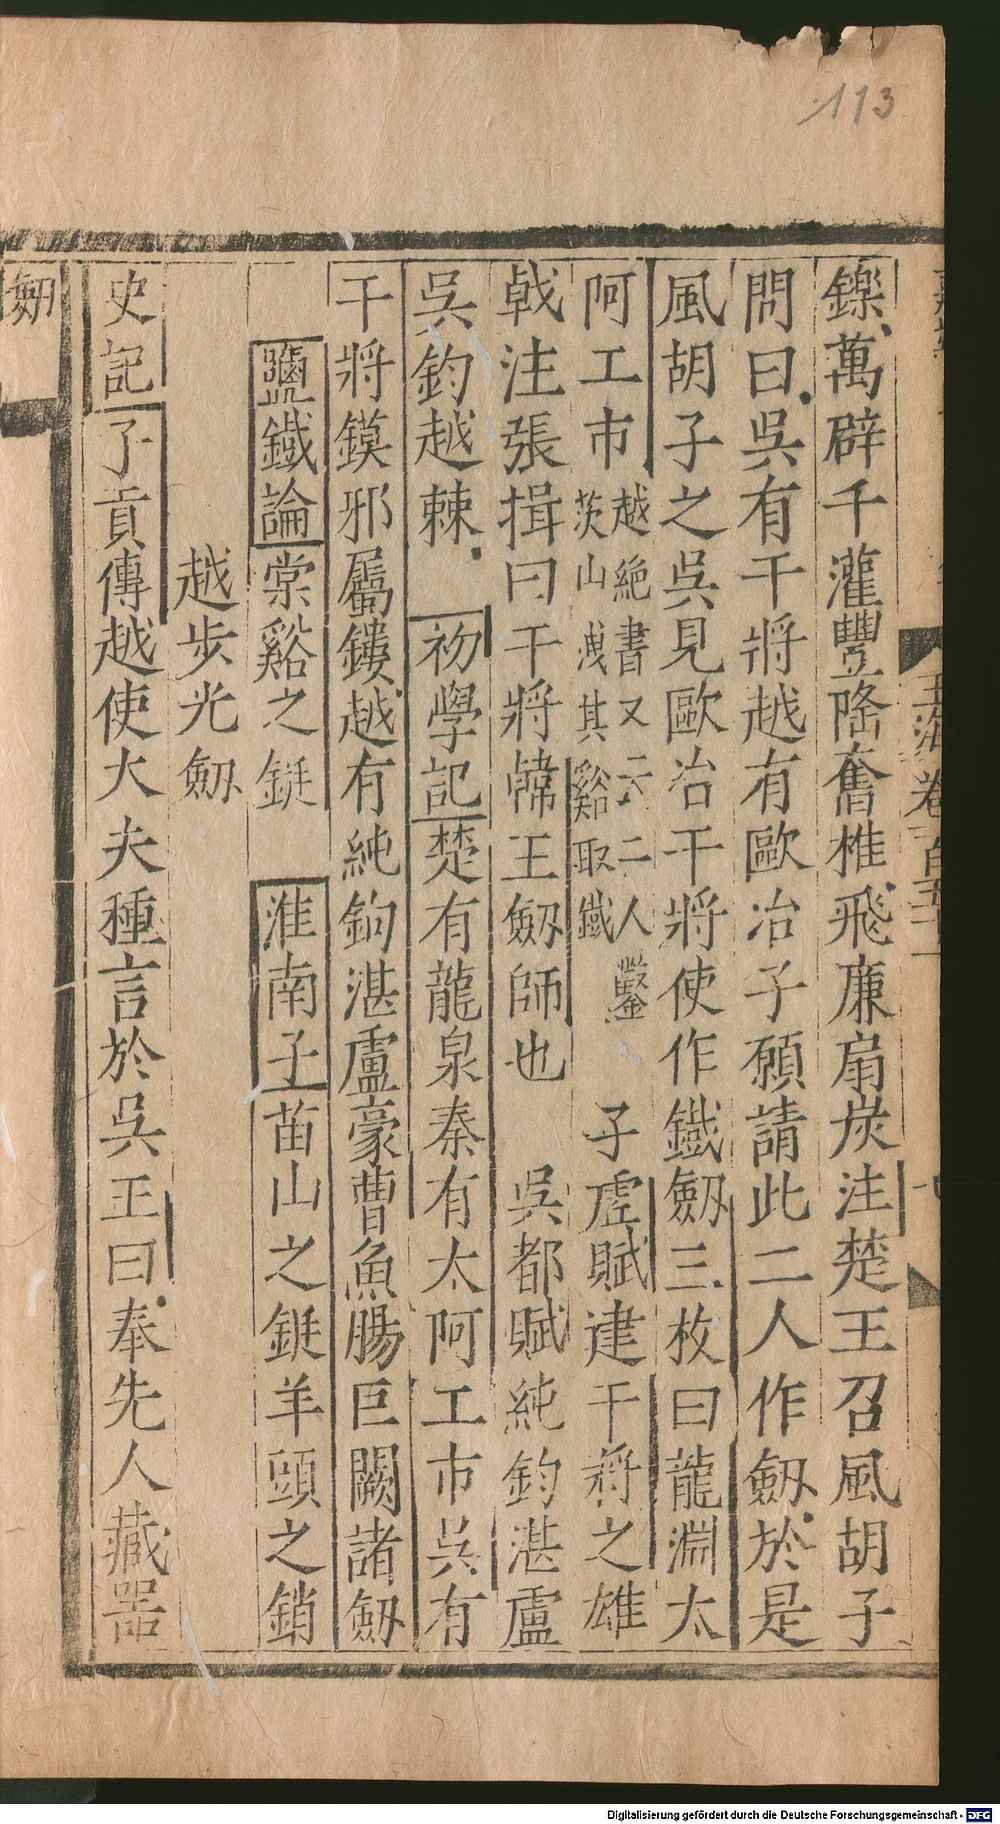 113
玉海卷百五十一
鑠萬辟千灌豐隆奮椎飛廉扇炭注楚王召風胡子
問曰吳有干將越有歐冶子願請此二人作劒於是
風胡子之吳見歐冶干將使作鐵劒三枚曰龍淵太
阿工市越絕書又云二人鑿茨山洩其谿取鐵 子虛賦建干將之雄
戟注張揖曰干將韓王劒師也 吳都賦純鈞湛盧
吳鈞越棘 初學記楚有龍泉秦有太阿工市吳有
干將鏌邪屬鏤越有純鈞湛盧豪曹魚腸巨闕諸劒
鹽鐵論棠谿之鋌 淮南子苗山之鋌羊頭之銷
越步光劒
史記子貢傳越使大夫種言於吳王曰奉先人藏器
劒
Digitalisierung gefördert durch die Deutsche Forschungsgemeinschaft - DFG